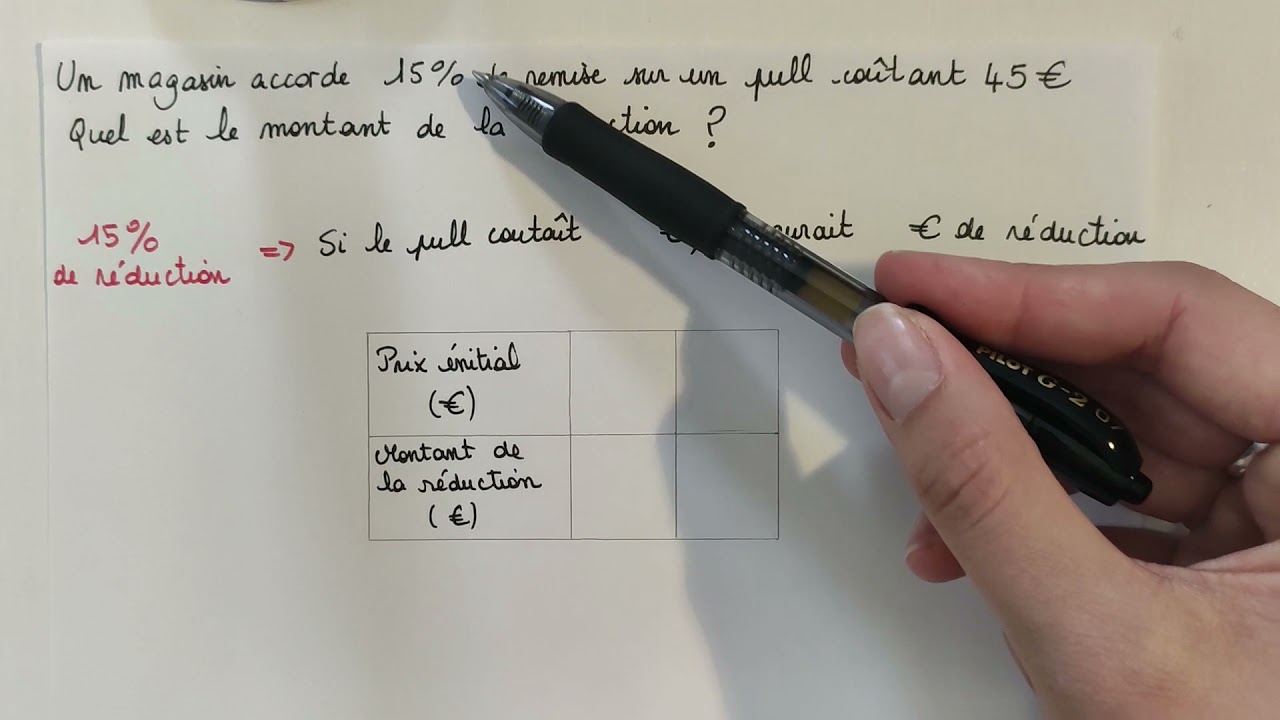 Un magasin accorde 15% de remise sur un pull coûtant 45€
Quel est le montant de la ction ?
15%
de réduction
=> Si le pull coutaît € urait € de réduction
Prix énitial
(€)
Montant de
la réduction
(€)
PILOT G-2 07